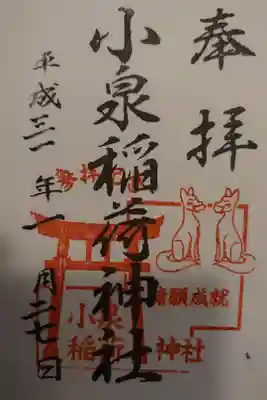 奉拝
小泉稲荷神社
平成三一年一月二七日
諸願成就
小泉
稲荷神社